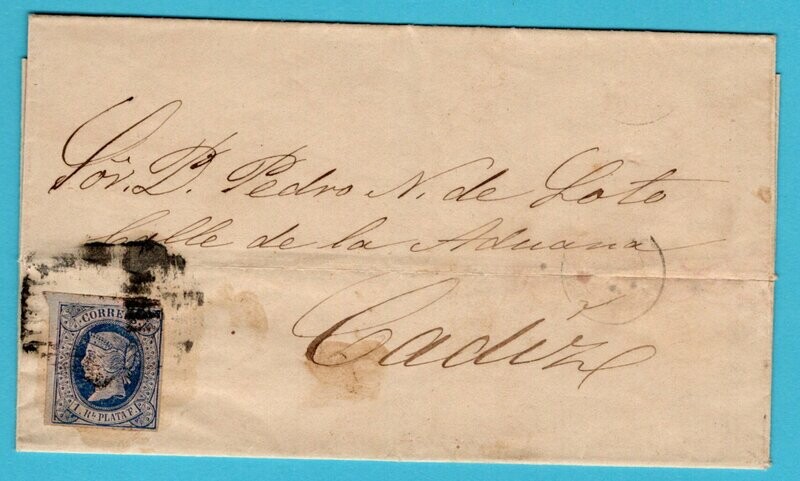 Sõr. D. Pedro N. de Soto
Calle de la Aduana
Cadiz
CORREOS
1 Rl. PLATA F.